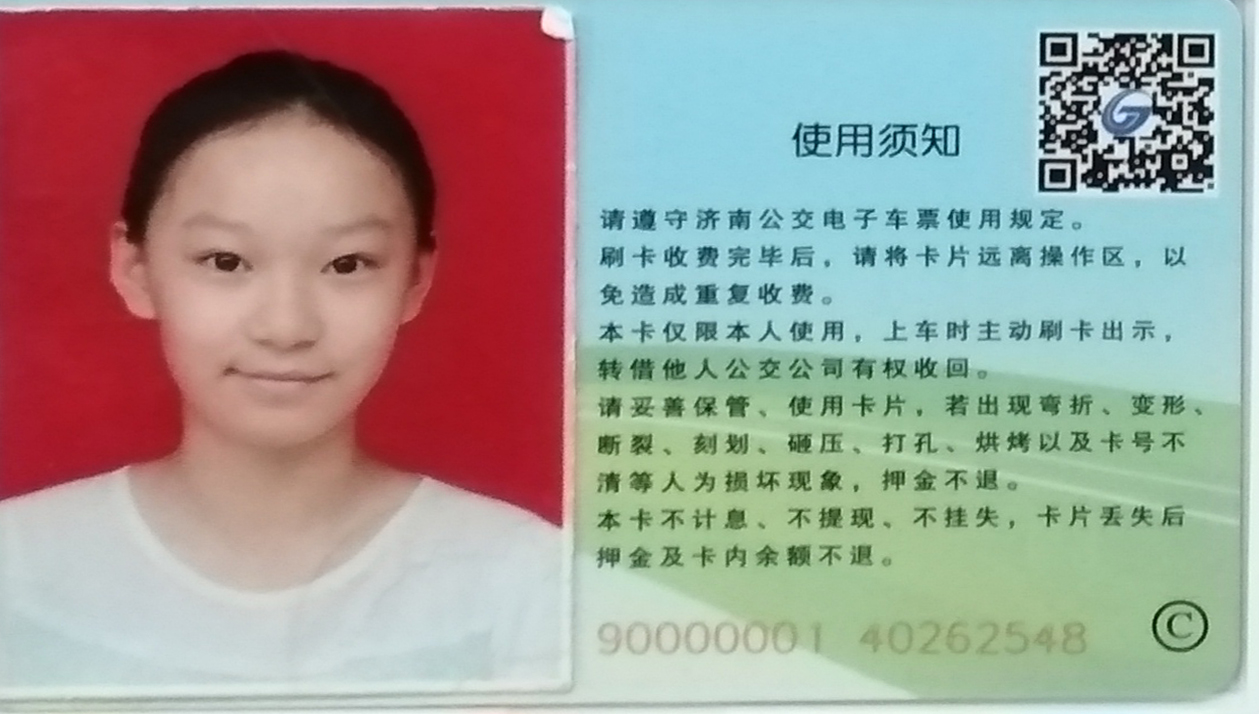 使用须知
请遵守济南公交电子车票使用规定。
刷卡收费完毕后，请将卡片远离操作区，以
免造成重复收费。
本卡仅限本人使用，上车时主动刷卡出示，
转借他人公交公司有权收回。
请妥善保管、使用卡片，若出现弯折、变形、
断裂、刻划、砸压、打孔、烘烤以及卡号不
清等人为损坏现象，押金不退。
本卡不计息、不提现、不挂失，卡片丢失后
押金及卡内余额不退。
90000001 40262548
©